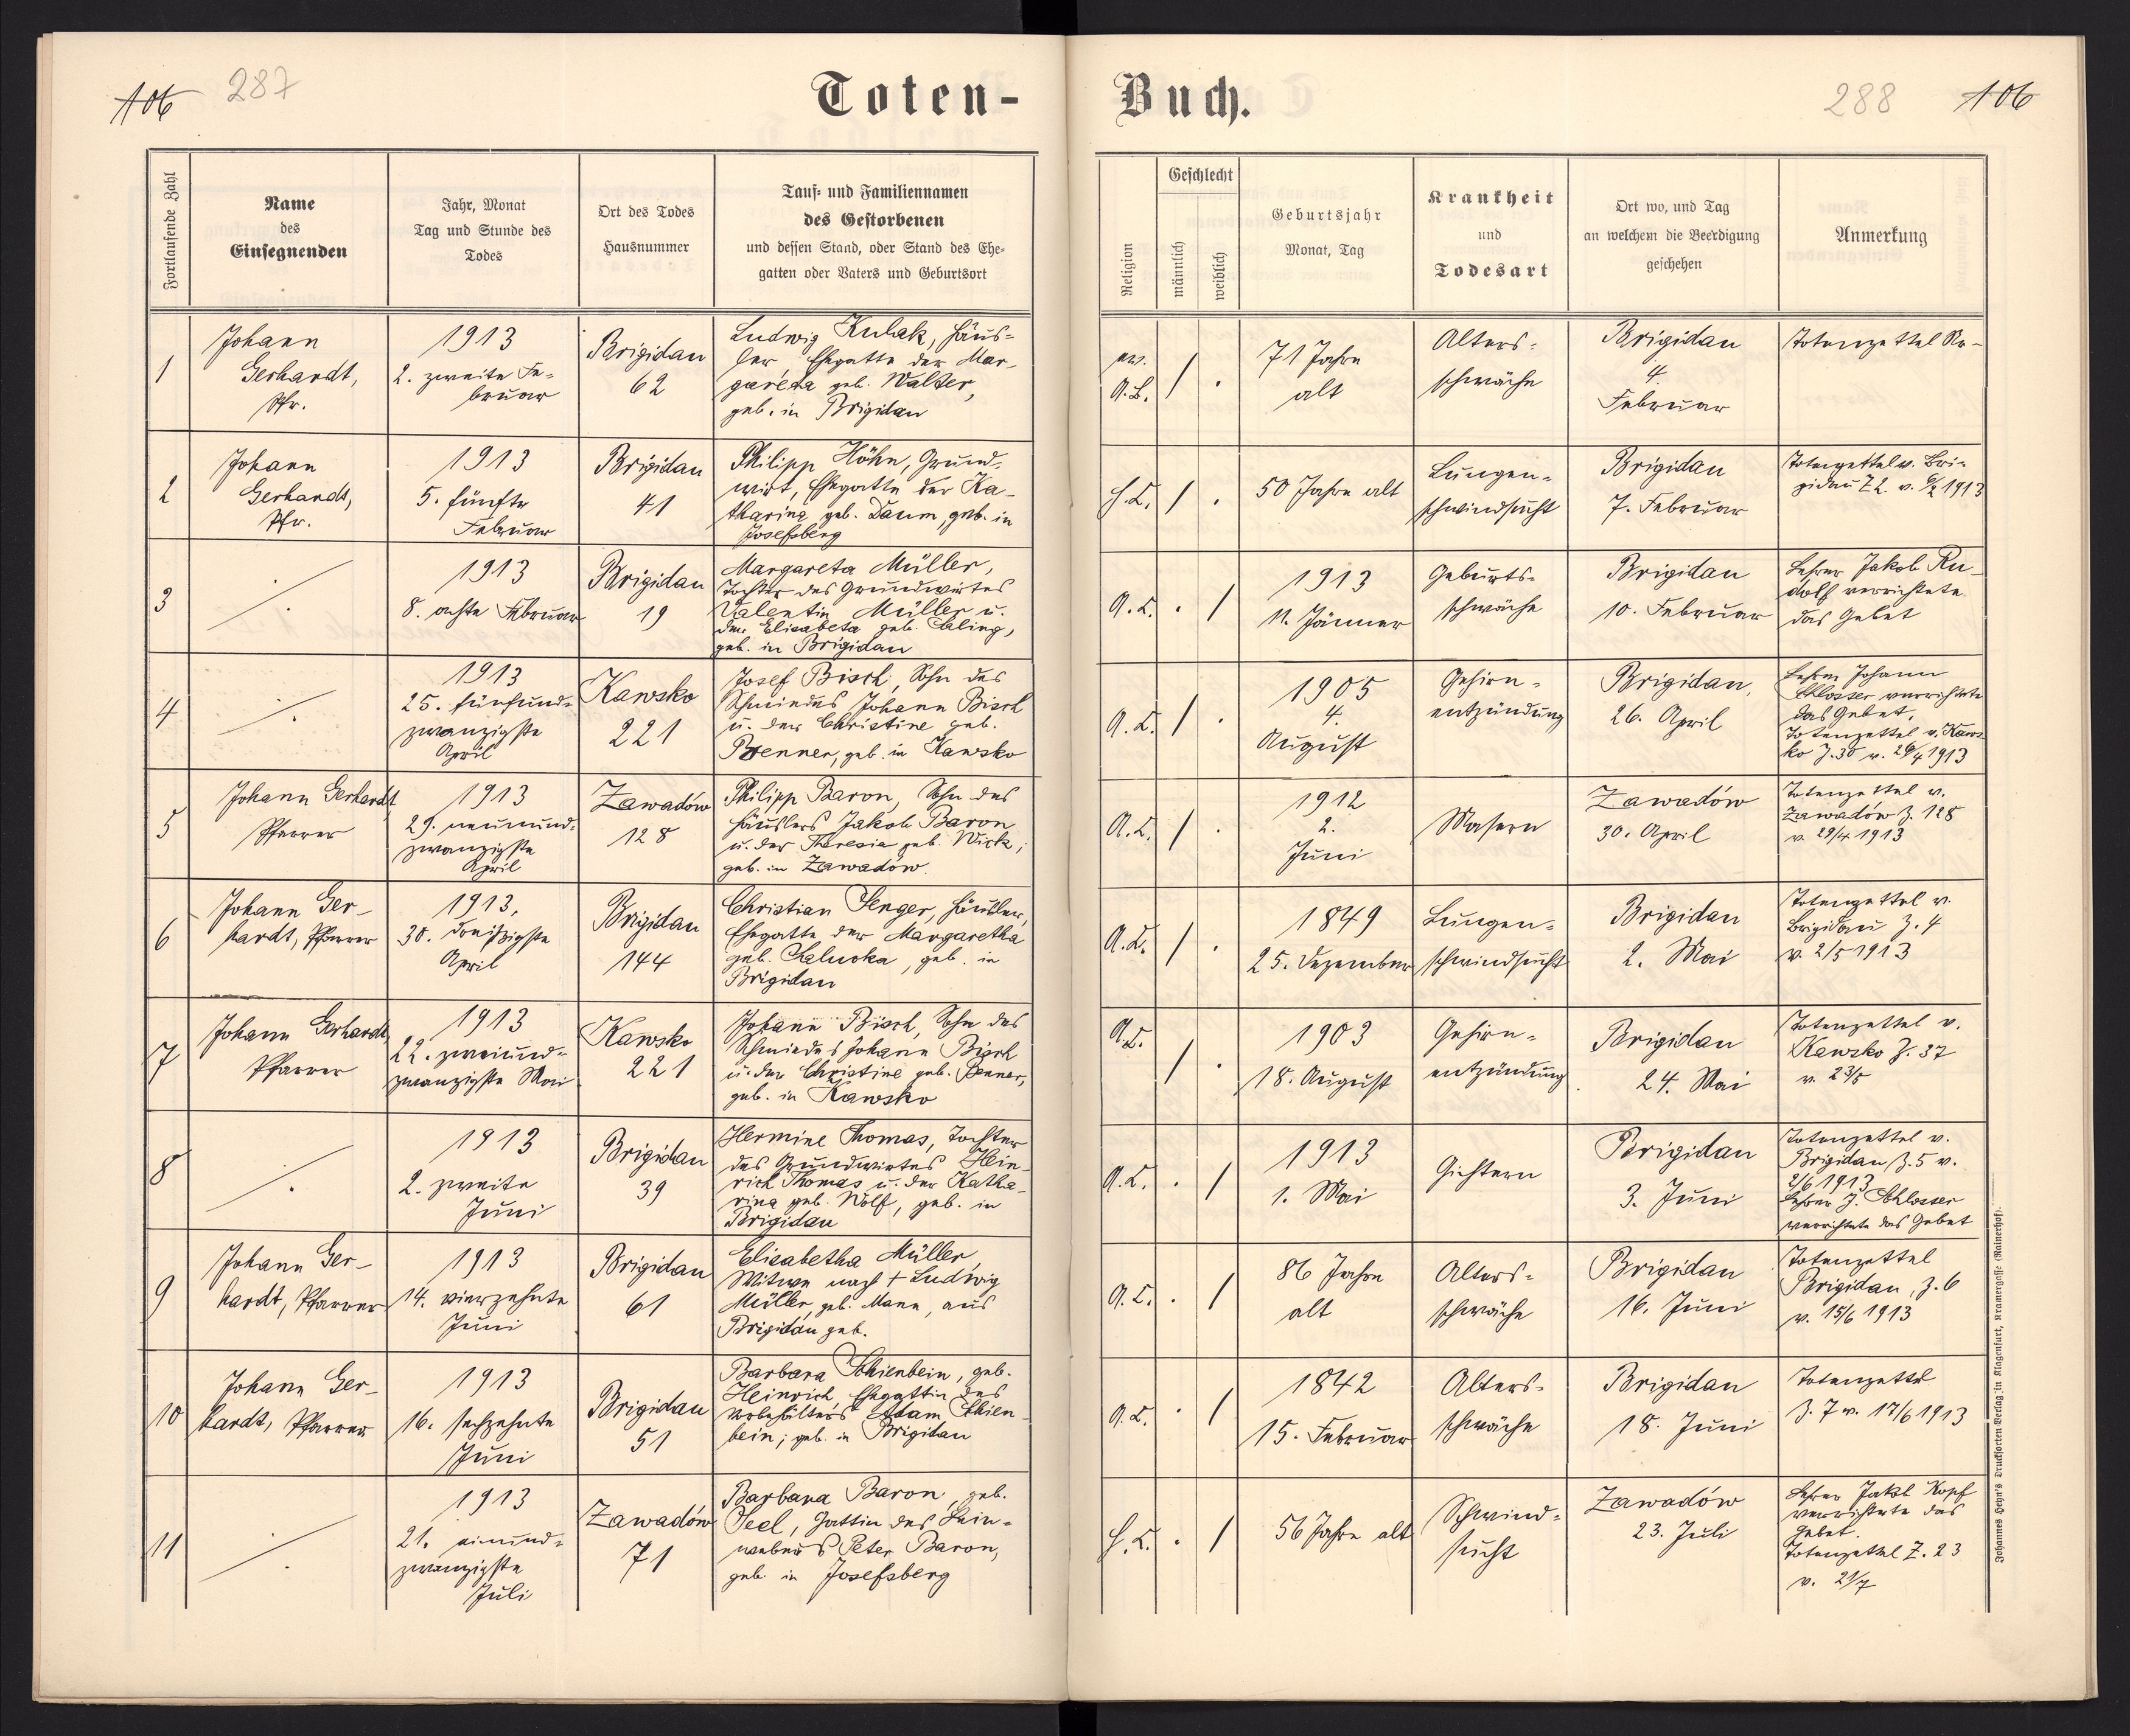 106 287
Toten-
Buch.
288 106
Fortlaufende Zahl
Name
des
Einsegnenden
Jahr, Monat
Tag und Stunde des
Todes
Ort des Todes
Hausnummer
Tauf- und Familiennamen
des Gestorbenen
und dessen Stand, oder Stand des Ehe-
gatten oder Vaters und Geburtsort
Religion
Geschlecht
männlich
weiblich
Geburtsjahr
Monat, Tag
Krankheit
und
Todesart
Ort wo, und Tag
an welchem die Beerdigung
geschehen
Anmerkung
1
Johann
Gerhardt,
Pfr.
1913
2. zweite Fe-
bruar
Brigidau
62
Ludwig Kulak, Häus-
ler, Ehegatte der Mar-
gareta geb. Walter,
geb. in Brigidau
ev.
A.B.
/ .
71 Jahre
alt
Alters-
schwäche
Brigidau
4.
Februar
Totenzettel
2
Johann
Gerhardt,
Pfr.
1913
5. fünfte
Februar
Brigidau
41
Philipp Höhn, Grund-
wirt, Ehegatte der Ka-
tharina geb. Daum, geb. in
Josefsberg
H.C. / .
50 Jahre alt
Lungen-
schwindsucht
Brigidau
7. Februar
Totenzettel v. Bri-
gidau Z 2. v. 6/2 1913
3
/.
1913
8. achte Februar
Brigidau
19
Margareta Müller,
Tochter des Grundwirtes
Valentin Müller u.
der Elisabeta geb.
geb. in Brigidau
A.C. . /
1913
11. Jänner
Geburts-
schwäche
Brigidau
10. Februar
Lehrer Jakob Ru-
dolf verrichtete
das Gebet
4
/.
1913
25. fünfund-
zwanzigste
April
Kawsko
221
Josef Bisch, Sohn des
Schmiedes Johann Bisch
u. der Christine geb.
Benner, geb. in Kawsko
A.C. / .
1905
4.
August
Gehirn-
entzündung
Brigidau,
26. April
Lehrer Johann
Schlosser verrichtete
das Gebet.
Totenzettel v. Kaws-
ko Z. 30 v. 26/4 1913
5
Johann Gerhardt
Pfarrer
1913
29. neunund-
zwanzigste
April
Zawadów
128
Philipp Baron, Sohn des
Häuslers Jakob Baron
u. der Theresia geb. Wick,
geb. in Zawadów.
A.C. / .
1912
2.
Juni
Masern
Zawadów
30. April
Totenzettel v.
Zawadów Z. 128
v. 29/4 1913
6
Johann Ger-
hardt, Pfarrer
1913,
30. dreißigste
April
Brigidau
144
Christian Senger, Häusler,
Ehegatte der Margaretha
geb. Saluska, geb. in
Brigidau
A.C. / .
1849
25. Dezember
Lungen-
schwindsucht
Brigidau
2. Mai
Totenzettel v.
Brigidau Z. 4
v. 2/5 1913
7
Johann Gerhardt
Pfarrer
1913
22. zweiund-
zwanzigste Mai
Kawsko
221
Johann Bisch, Sohn des
Schmiedes Johann Bisch
u. der Christine geb. Benner,
geb. in Kawsko
A.C.
/ .
1903
18. August
Gehirn-
entzündung
Brigidau
24. Mai
Totenzettel v.
Kawsko Z. 37
v. 23/5
8
/.
1913
2. zweite
Juni
Brigidau
39
Hermine Thomas, Tochter
des Grundwirtes Hein-
rich Thomas u. der Katha-
rina geb. Wolf, geb. in
Brigidau
A.C. . /
1913
1. Mai
Gichtern
Brigidau
3. Juni
Totenzettel v.
Brigidau Z. 5 v.
2/6 1913
Lehrer J. Schlosser
verrichtete das Gebet
9
Johann Ger-
hardt, Pfarrer
1913
14. vierzehnte
Juni
Brigidau
61
Elisabetha Müller
Witwe nach + Ludwig
Müller, geb. Mann, aus
Brigidau geb.
A.C. . /
86 Jahre
alt
Alters-
schwäche
Brigidau
16. Juni
Totenzettel
Brigidau, Z. 6
v. 15/6 1913
10
Johann Ger-
hardt, Pfarrer
1913
16. sechzehnte
Juni
Brigidau
51
Barbara Schienbein, geb.
Heinrich, Ehegattin des
Vorbehälters Adam Schien-
bein; geb. in Brigidau
A.C. . /
1842
15. Februar
Alters-
schwäche
Brigidau
18. Juni
Totenzettel
Z. 7 v. 17/6 1913
11
/.
1913
21. einund-
zwanzigste
Juli
Zawadów
71
Barbara Baron, geb.
Seel, Gattin des Lein-
webers Peter Baron,
geb. in Josefsberg
H.C. . /
56 Jahre alt
Schwind-
sucht
Zawadów
23. Juli
Lehrer Jakob Kopf
verrichtete das
Gebet.
Totenzettel Z. 23
v. 21/7
Johannes Heyn's Drucksorten-Verlag in Klagenfurt, Kramergasse (Rainerhof).